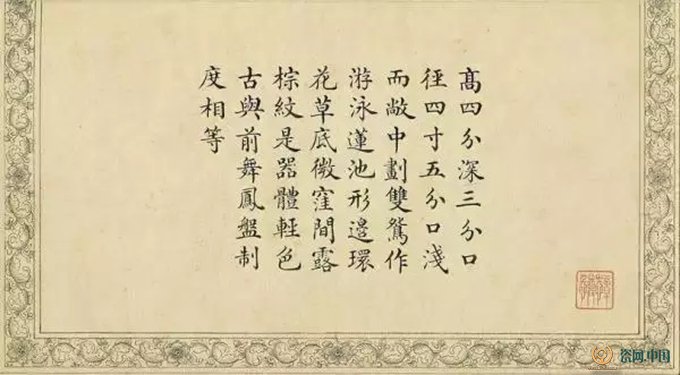 高四分深三分口
徑四寸五分口淺
而敞中劃雙鴛作
游泳蓮池形邉環
花草底微窪間露
棕紋是器體輕色
古與前舞鳳盤制
度相等
资网.中国